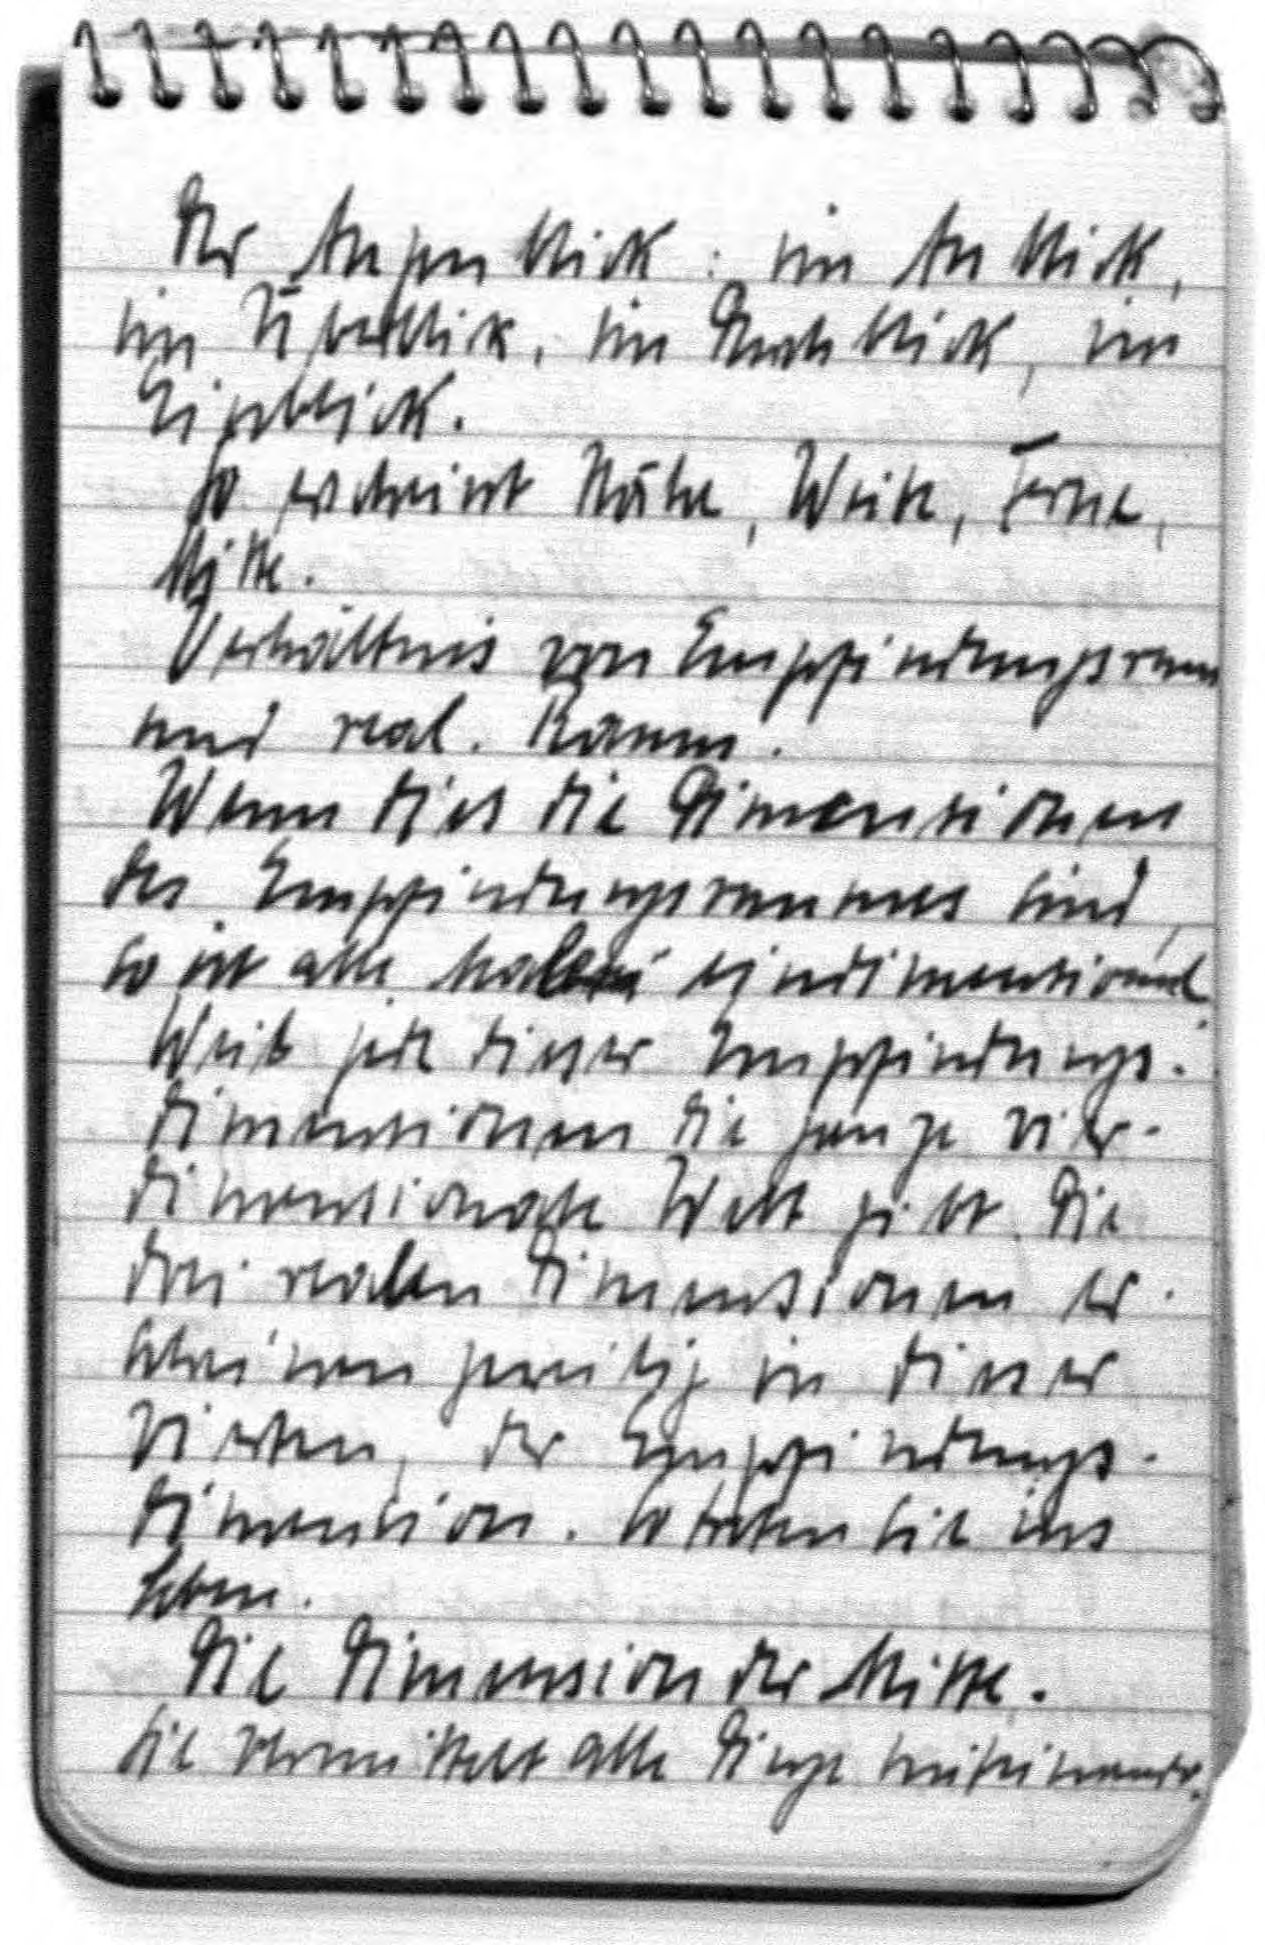 Der Augenblick: im Anblick,
im Überblick, im Durchblick, im
Einblick.
So erscheint Nähe, Weite, Ferne,
Mitte.
Verhältnis von Empfindungsraum
und real. Raum.
Wenn dies die Dimensionen
des Empfindungsraumes sind,
so ist alle Malerei eindimensional
Weil jede dieser Empfindungs-
dimensionen die ganze vier-
dimensionale Welt gibt. Die
drei realen Dimensionen er-
scheinen jeweilig in dieser
Vierten, der Empfindungs-
dimension. So treten sie ins
Leben.
Die Dimension der Mitte.
Sie vermittelt alle Dinge miteinander.